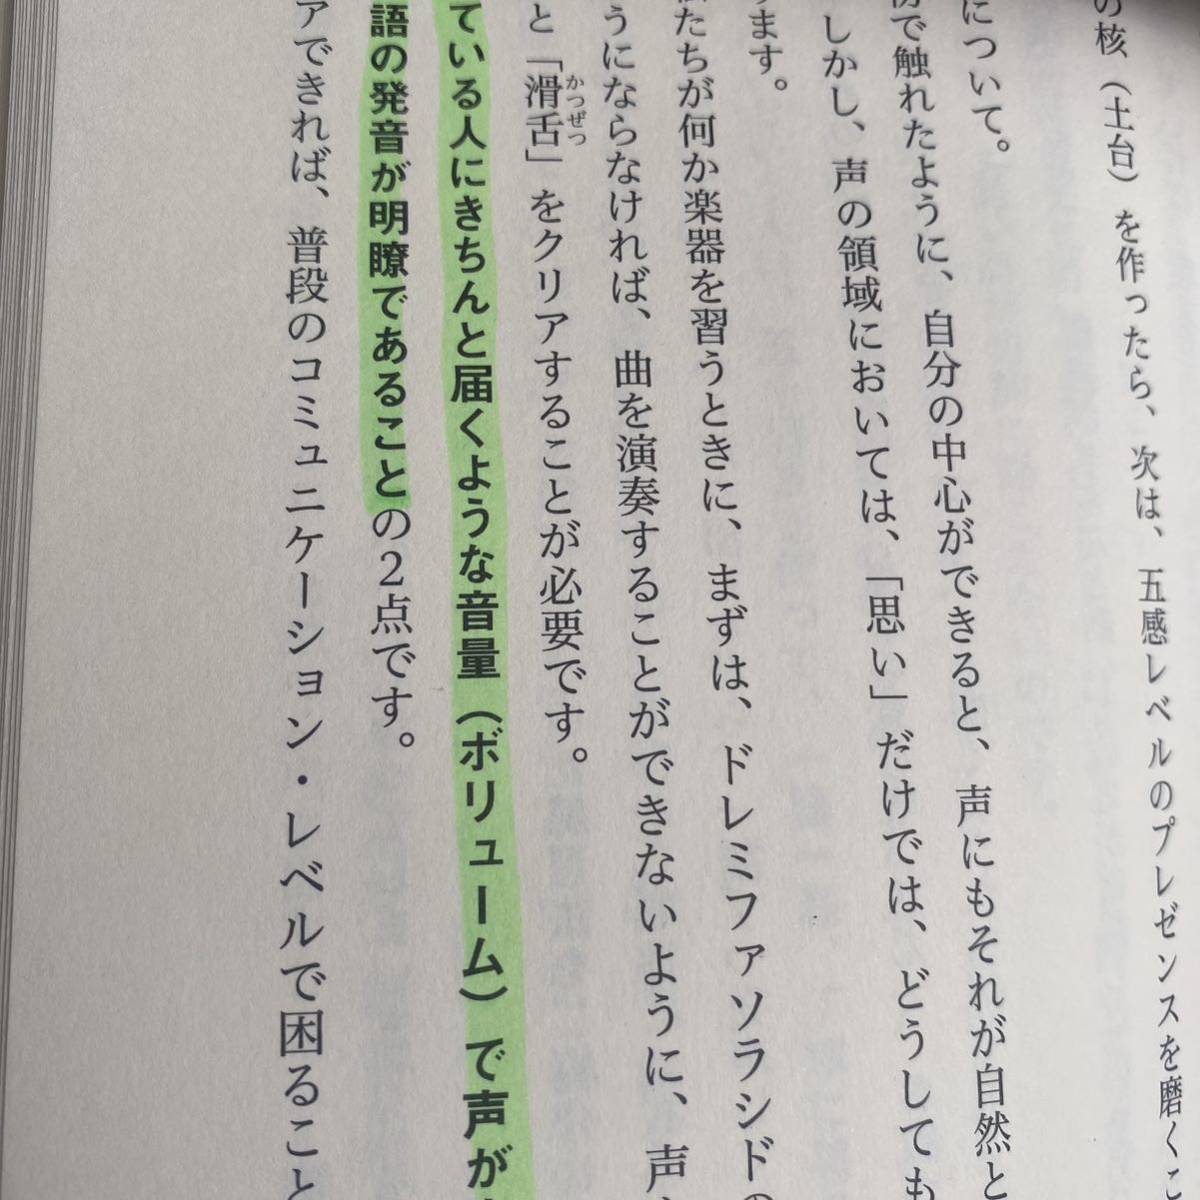 の核（土台）を作ったら、次は、五感レベルのプレゼンスを磨くこ
について。
で触れたように、自分の中心ができると、声にもそれが自然と
しかし、声の領域においては、「思い」だけでは、どうしても
ます。
たちが何か楽器を習うときに、まずは、ドレミファソラシドの
うにならなければ、曲を演奏することができないように、声
と「滑舌」をクリアすることが必要です。
かつぜつ
ている人にきちんと届くような音量（ボリューム）で声が
語の発音が明瞭であることの2点です。
アできれば、普段のコミュニケーション・レベルで困ること